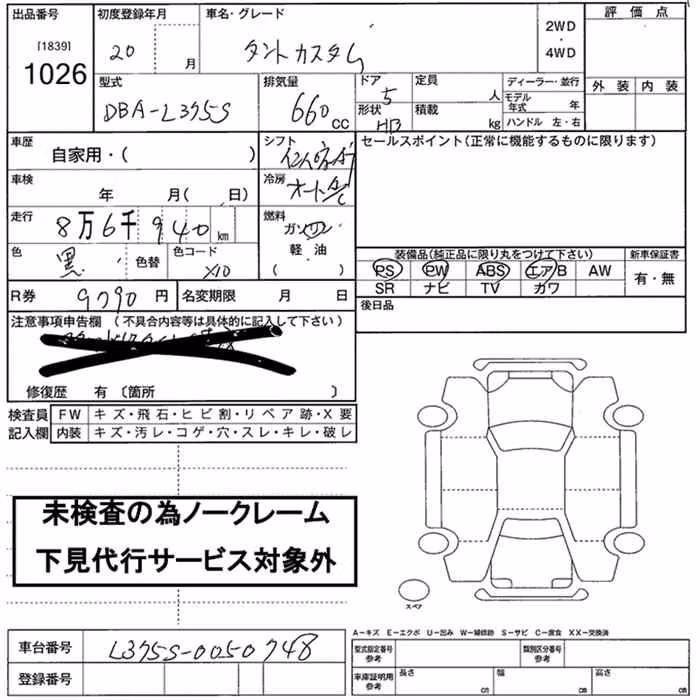 出品番号 初度登録年月 車名・グレード 2WD・4WD 評価点
[1839]
1026 20 月 タントカスタム
型式 排気量 ドア 定員 ディーラー・並行 外装 内装
DBA-L375S 660cc 5 人 モデル年式 年
形状 積載
HB kg ハンドル 左・右
車歴 シフト セールスポイント(正常に機能するものに限ります)
自家用・( )
車検 冷房
年 月( 日) オートA/C
走行 燃料
8万6千940km ガソリン
色 色替 色コード 軽・油 装備品(純正品に限り丸をつけて下さい) 新車保証書
黒 X10 ( ) PS PW ABS エアB AW 有・無
SR ナビ TV カワ
R券 9790円 名変期限 月 日 後日品
注意事項申告欄 (不具合内容等は具体的に記入して下さい)
修復歴 有 〔箇所 〕
検査員 FW キズ・飛石・ヒビ割・リペア跡・X要
記入欄 内装 キズ・汚レ・コゲ・穴・スレ・キレ・破レ
未検査の為ノークレーム
下見代行サービス対象外
スペア
A-キズ E-エクボ U-凹み W-補修跡 S-サビ C-腐食 XX-交換済
車台番号 L375S-0050748 型式指定番号参考 類別区分番号参考
登録番号 車庫証明用参考 長さ cm 幅 cm 高さ cm